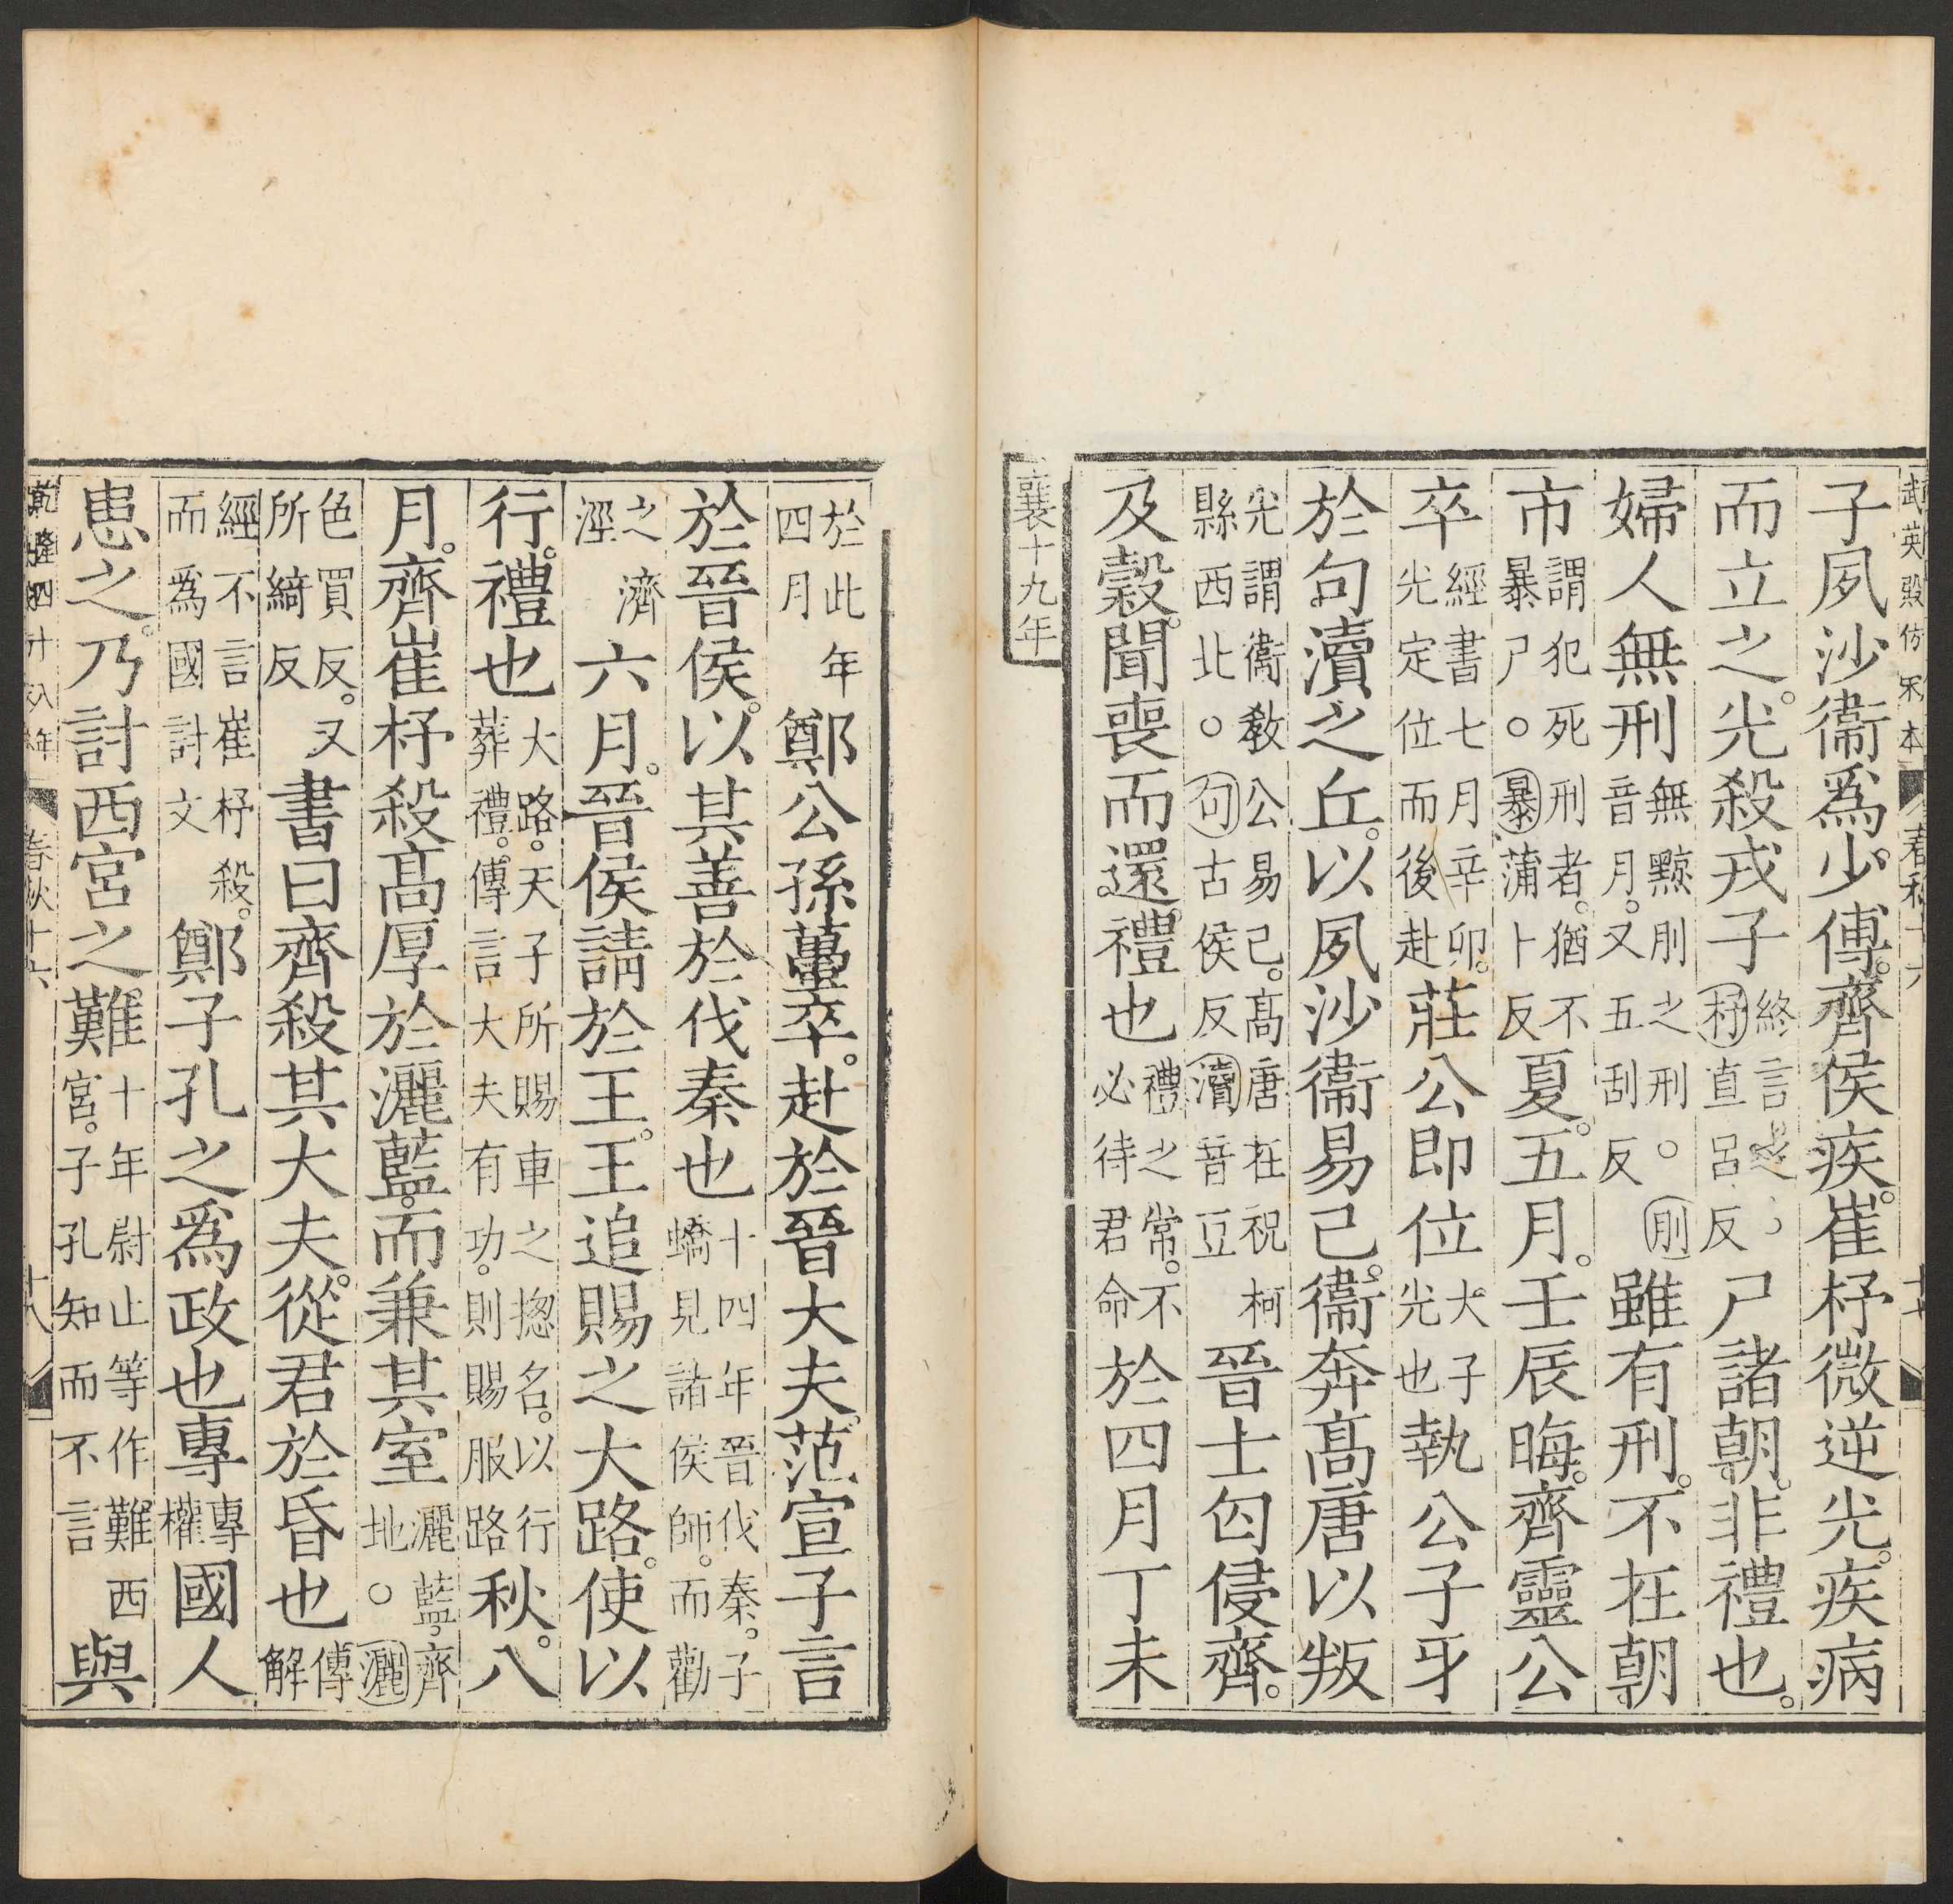 武英殿仿宋本 春秋十六 十七
子夙沙衞爲少傅。齊侯疾。崔杼微逆光。疾病
而立之。光殺戎子終言之○杼直呂反尸諸朝。非禮也。
婦人無刑無黥刖之刑。○刖音月。又五刮反雖有刑。不在朝
市謂犯死刑者。猶不暴尸。○暴蒲卜反夏。五月。壬辰晦。齊靈公
卒經書七月辛卯。光定位而後赴莊公即位大子光也執公子牙
於句瀆之丘。以夙沙衞易己。衞奔高唐以叛
光謂衞敎公易己。高唐在祝柯縣西北。○句古侯反瀆音豆晉士匄侵齊。
及穀。聞喪而還。禮也禮之常。不必待君命於四月丁未
襄十九年
於此年四月鄭公孫蠆卒。赴於晉大夫。范宣子言
於晉侯。以其善於伐秦也十四年晉伐秦。子蟜見諸侯師。而勸
之濟涇六月。晉侯請於王。王追賜之大路。使以
行。禮也大路。天子所賜車之揔名。以行葬禮。傳言大夫有功。則賜服路秋。八
月。齊崔杼殺高厚於灑藍。而兼其室灑藍。齊地。○灑
色買反。又所綺反書曰齊殺其大夫。從君於昏也傳解
經不言崔杼殺。而爲國討文鄭子孔之爲政也專專權國人
患之。乃討西宮之難十年尉止等作難西宮。子孔知而不言與
乾隆四十八年 春秋十六 十八